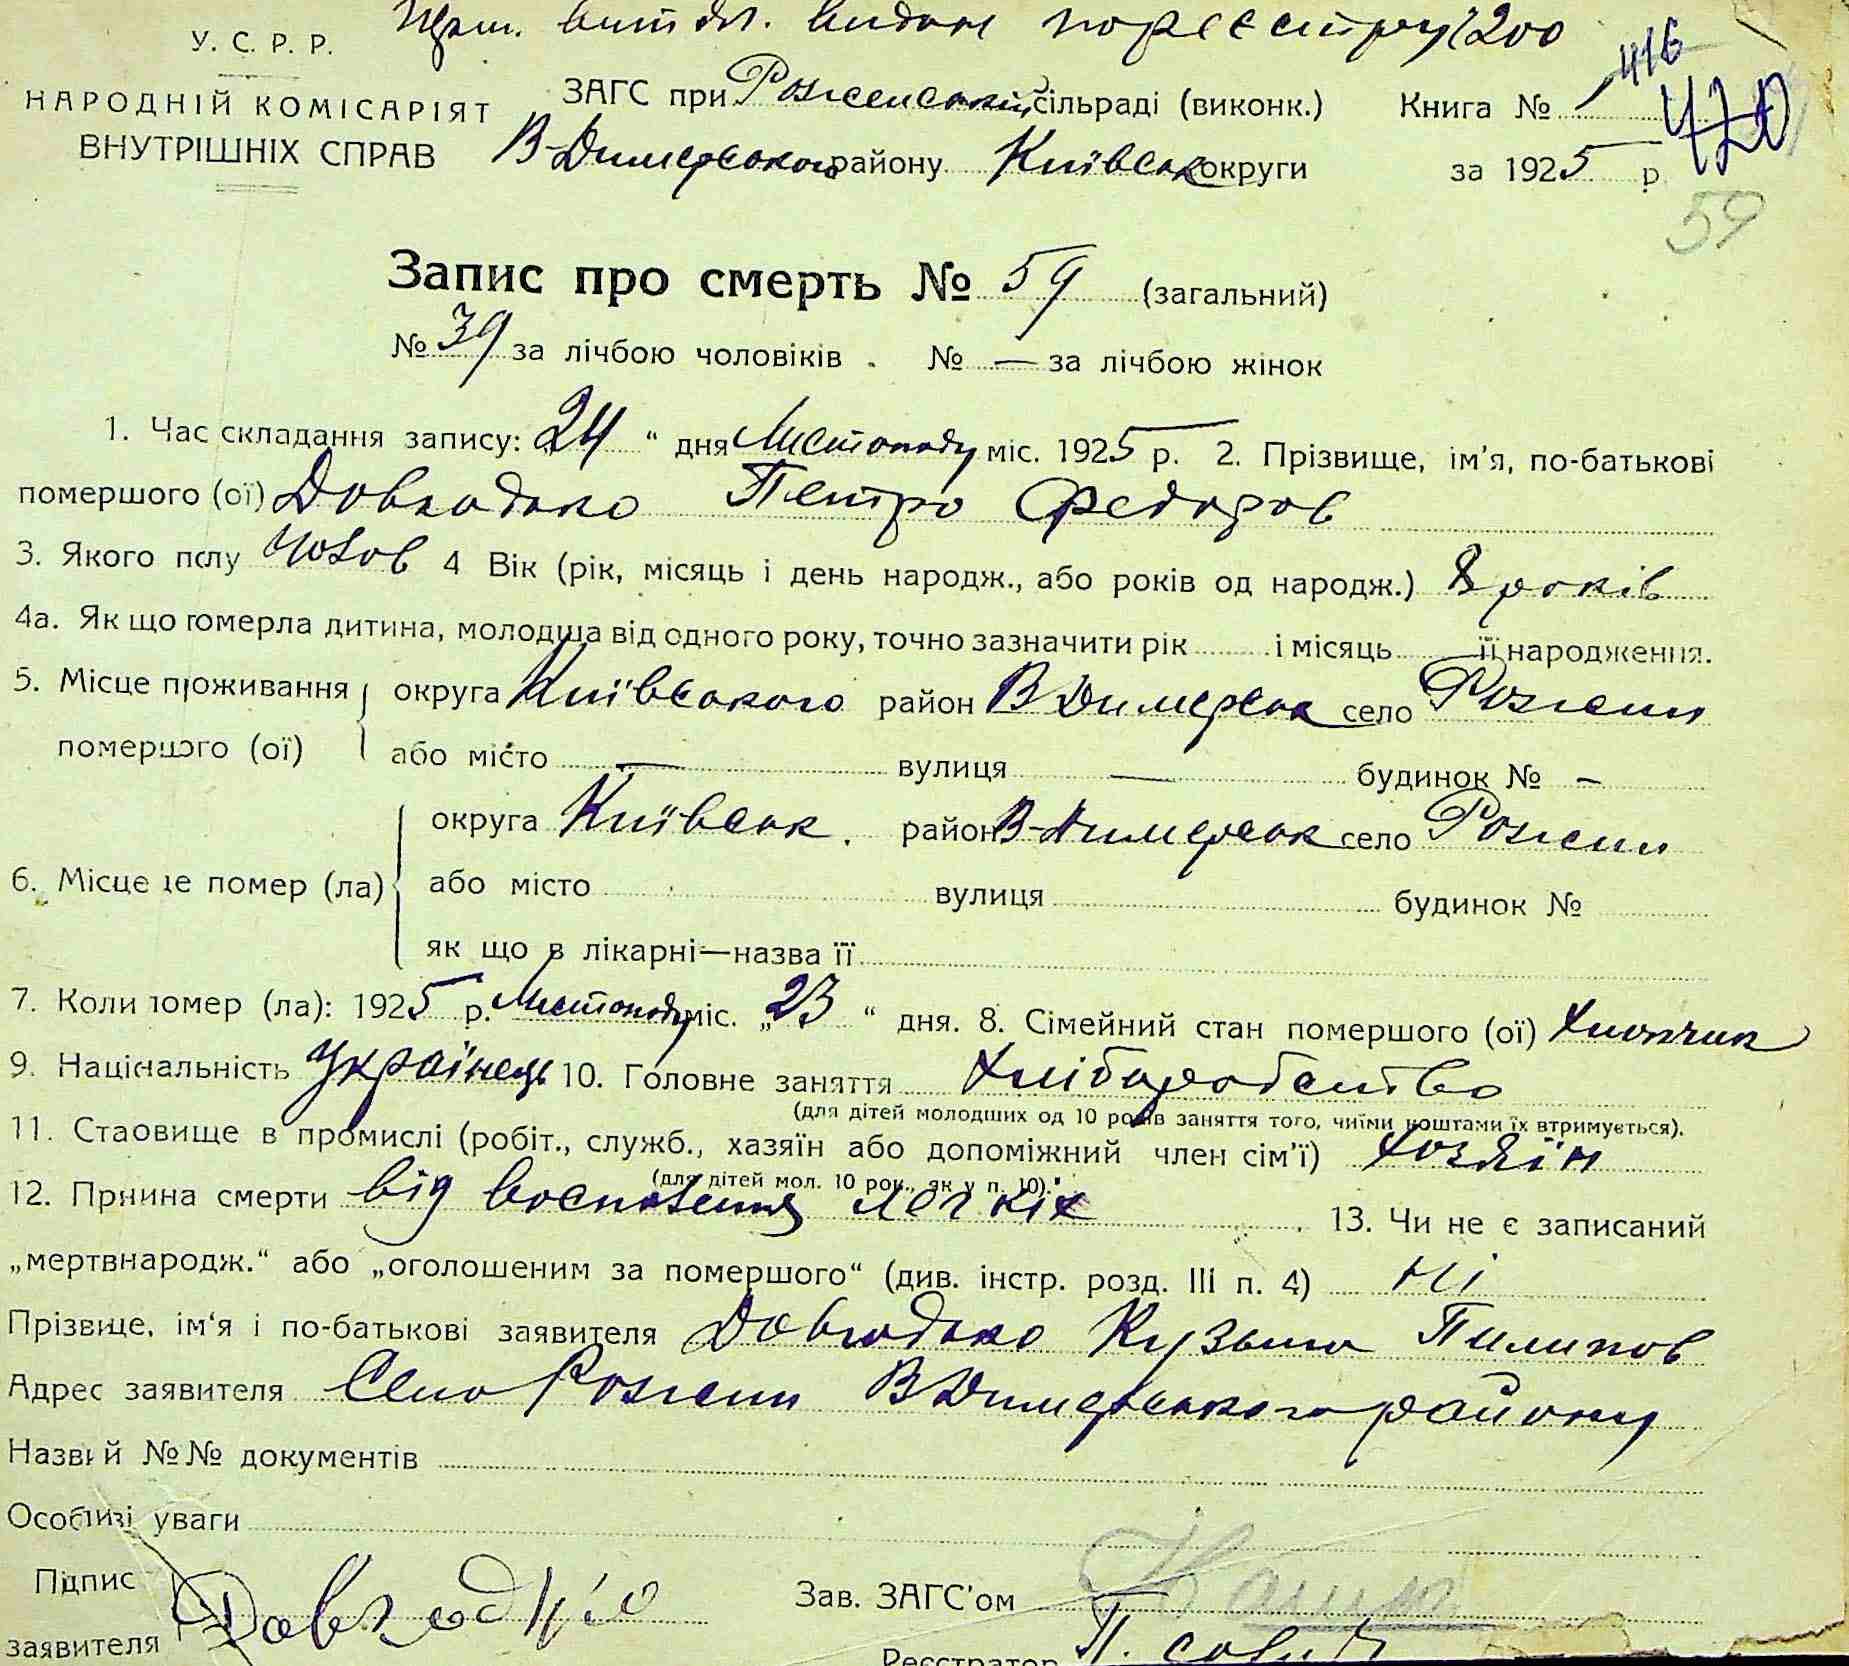 вит вид по реєстру 1200
У. С. Р. Р.
416
ЗАГС при Рожівський сільраді (виконк.) Книга № 420
НАРОДНІЙ КОМІСАРІЯТ
ВНУТРІШНІХ СПРАВ
В-Димерського району Київськ округи за 1925 р.
59
Запис про смерть № 59 (загальний)
№ 39 за лічбою чоловіків. № — за лічбою жінок
1. Час складання запису: „24“ дня Листопаду міс. 1925 р. 2. Прізвище, ім'я, по-батькові
помершого (ої) Петро Федоров
3. Якого полу чолов 4 Вік (рік, місяць і день народж., або років од народж.) 8 років
4а. Як що померла дитина, молодша від одного року, точно зазначити рік ......... і місяць ......... її народження.
5. Місце проживання помершого (ої) округа Київського район В Димерськ село Рожни
або місто — вулиця — будинок № –
6. Місце де помер (ла) округа Київськ. район В-Димерськ село Рожни
або місто ......... вулиця ......... будинок № .........
як що в лікарні—назва її
7. Коли помер (ла): 1925 р. Листопаду міс. „23“ дня. 8. Сімейний стан помершого (ої) хлопчик
9. Національність українець 10. Головне заняття хліборобство
(для дітей молодших од 10 років заняття того, чиїми коштами їх втримується).
11. Становище в промислі (робіт., служб., хазяїн або допоміжний член сім'ї) хозяїн
(для дітей мол. 10 рок., як у п. 10).
12. Причина смерти від воспаления легкіх 13. Чи не є записаний
„мертвнародж.“ або „оголошеним за помершого“ (див. інстр. розд. III п. 4) ні
Прізвище, ім'я і по-батькові заявителя Кузьма Пилипов
Адрес заявителя Село Рожни В Димерського району
Назви й №№ документів
Особливі уваги
Підпис заявителя
Зав. ЗАГС'ом
Реєстратор П.